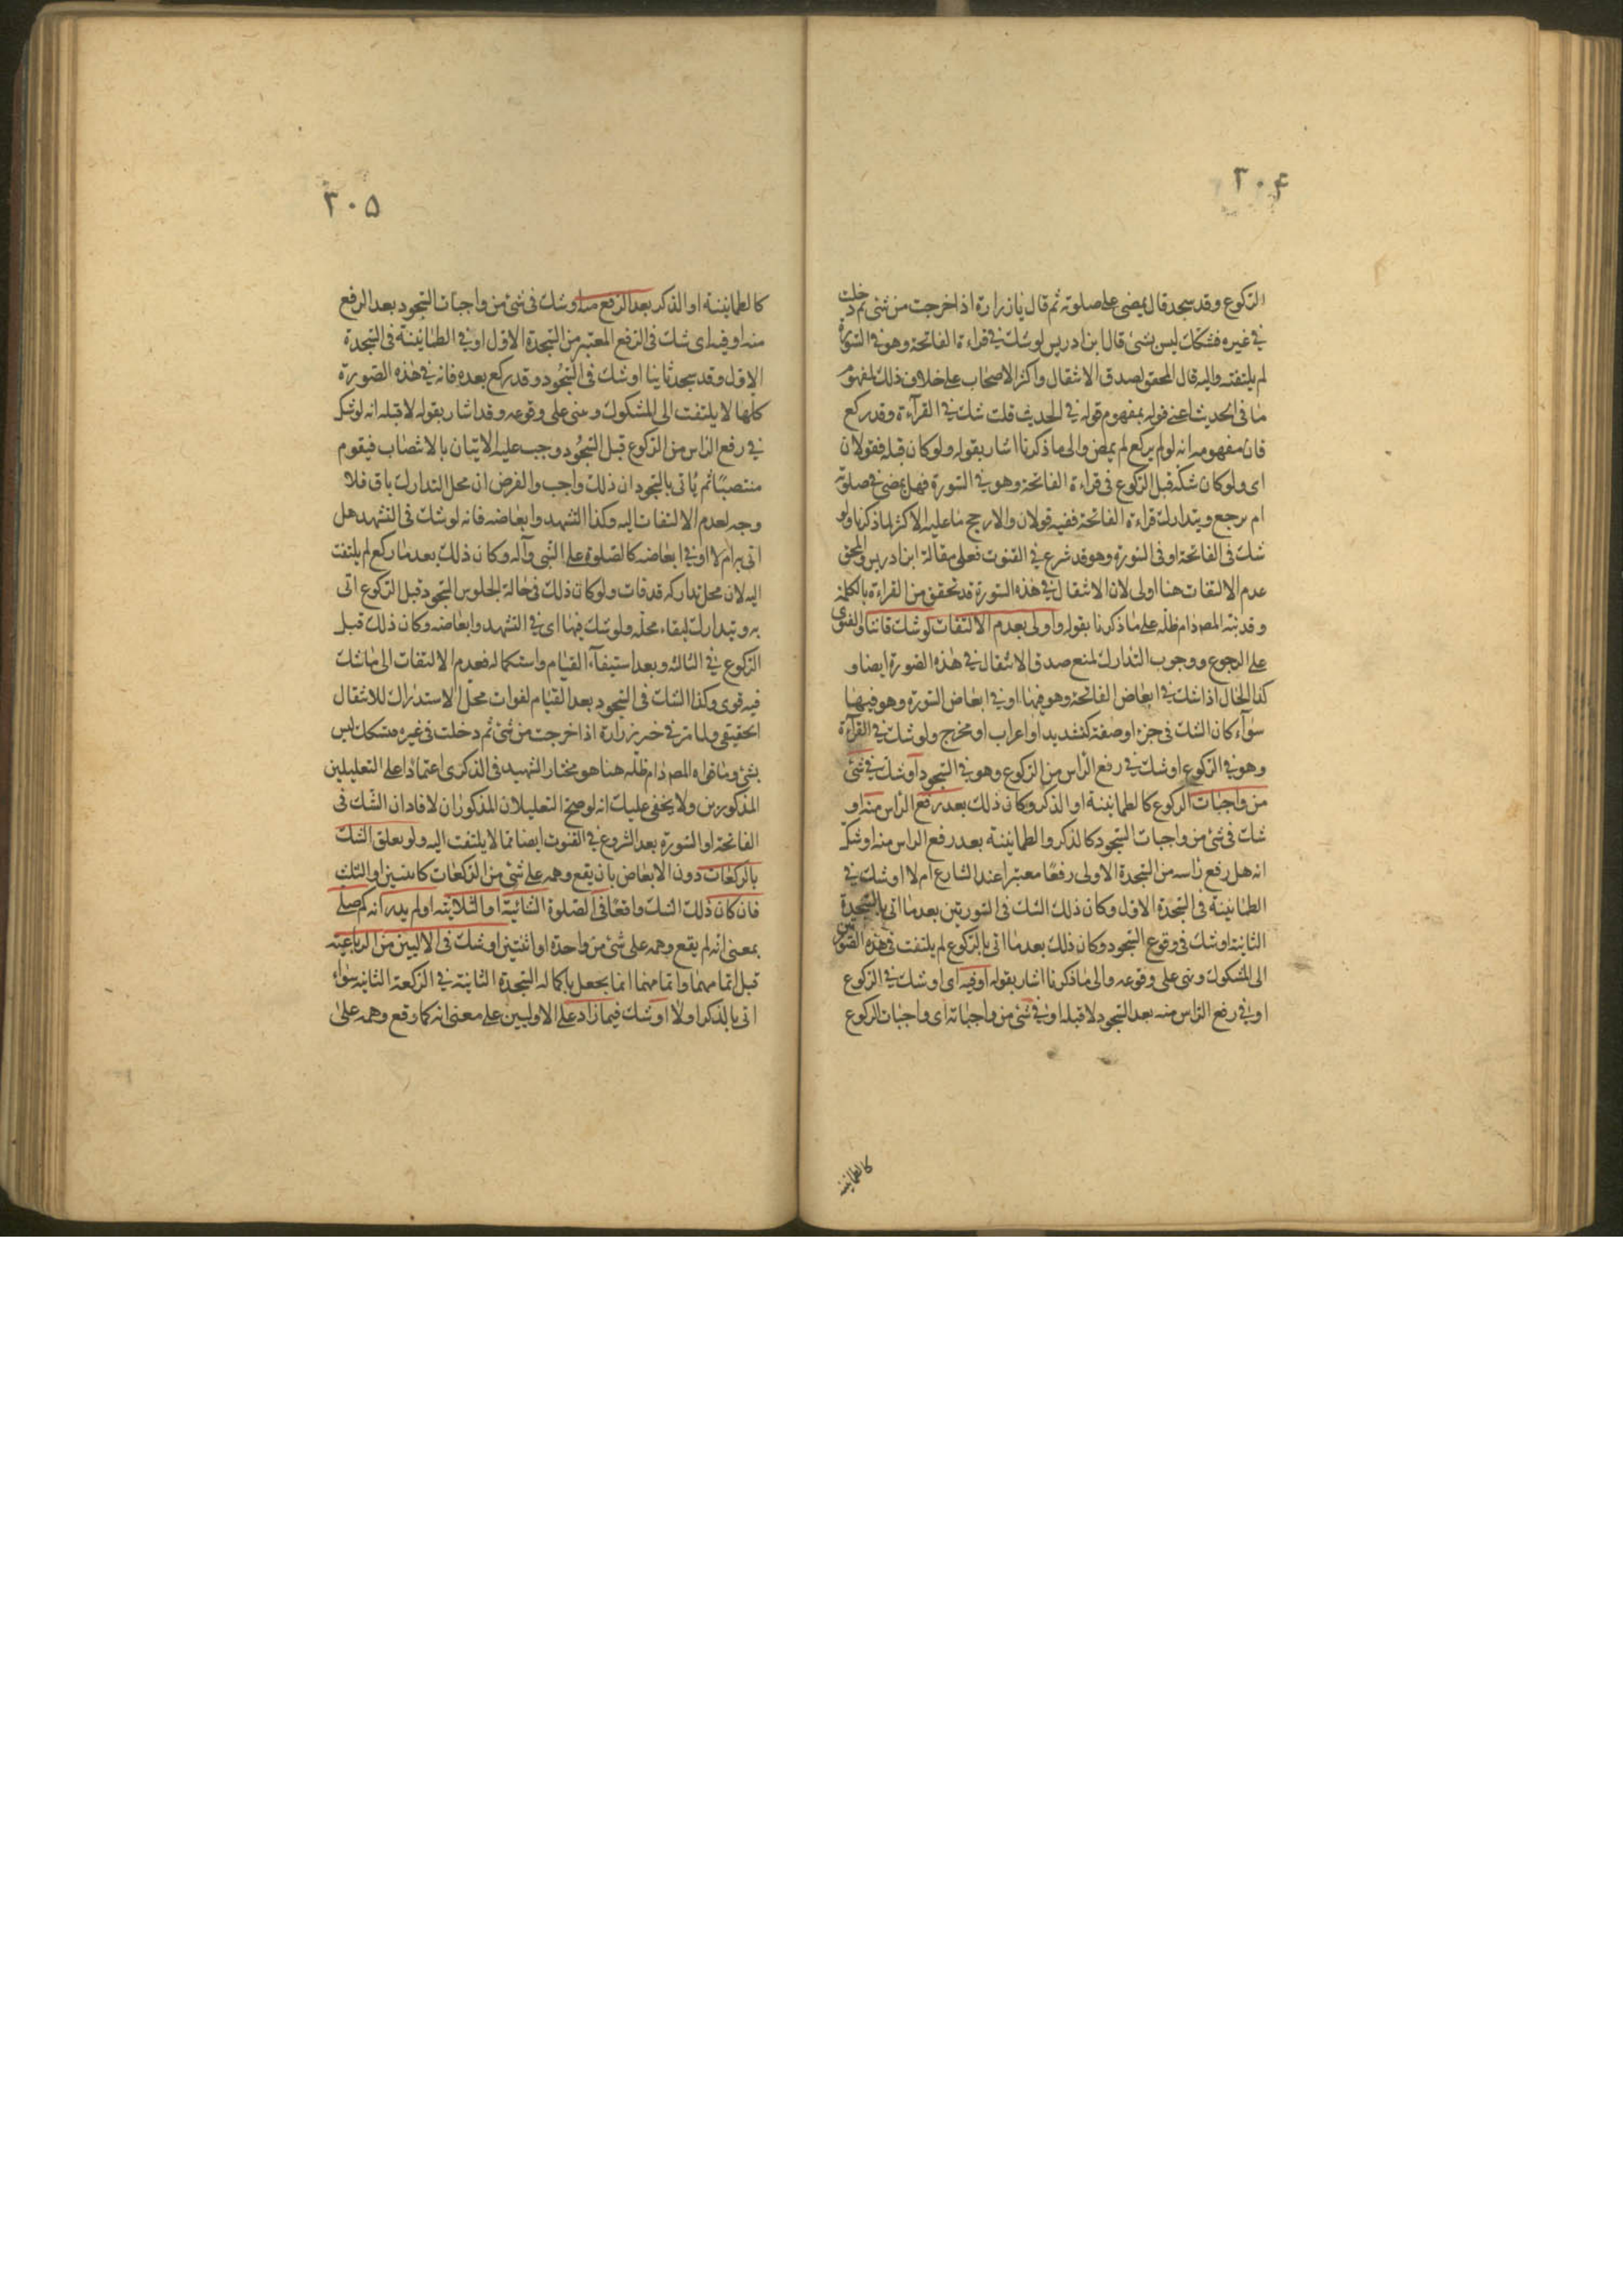 ٣٠۴
الركوع وقد سجد قال يمضى على صلوته ثم قال يا زرارة اذا خرجت من شئ ثم دخلت
فى غيره فشكك ليس بشئ قال ابن ادريس لو شك فى قراءة الفاتحة وهو فى السورة
لم يلتفت واليه قال المحقق لصدق الانتقال واكثر الاصحاب على خلاف ذلك لمفهوم
ما فى الحديث اعنى قوله بمفهوم قوله فى الحديث قلت شك فى القرآءة وقد ركع
فان مفهومه انه لو لم يركع لم يمض والى ما ذكرنا اشار بقوله ولو كان قبله فقولان
اى ولو كان شكه قبل الركوع فى قراءة الفاتحة وهو فى السورة فهل يمضى فى صلوته
ام يرجع ويتدارك قراءة الفاتحة ففيه قولان والارجح ما عليه الاكثر لما ذكرنا ولو
شك فى الفاتحة او فى السورة وهو قد شرع فى القنوت فعلى مقالة ابن ادريس والمحقق
عدم الالتفات هنا اولى لان الانتقال فى هذه السورة قد تحقق من القراءة بالكلية
وقد نبه المصدام ظله على ما ذكرنا بقوله واولى بعدم الالتفات لو شك قانتا والفتوى
على الرجوع ووجوب التدارك لمنع صدق الانتقال فى هذه الصورة ايضا و
كذا الحال اذا شك فى ابعاض الفاتحة وهو فيها او فى ابعاض السورة وهو فيها
سوآء كان الشك فى جزء او صفة كتشديد او اعراب او مخرج ولو شك فى القرآءة
وهو فى الركوع او شك فى رفع الرأس من الركوع وهو فى السجود او شك فى شئ
من واجبات الركوع كالطمانينة او الذكر وكان ذلك بعد رفع الرأس منه او
شك فى شئ من واجبات السجود كالذكر والطمانينة بعد رفع الراس منه او شك
انه هل رفع رأسه من السجدة الاولى رفعًا معتبرا عند الشارع ام لا او شك فى
الطمانينة فى السجدة الاول وكان ذلك الشك فى السورتين بعد ما اتى بالسجدة
الثانية او شك فى وقوع السجود وكان ذلك بعد ما اتى بالركوع لم يلتفت فى هذه الصور
الى المشكوك وبنى على وقوعه والى ما ذكرنا اشار بقوله او فيه اى او شك فى الركوع
او فى رفع الراس منه بعد السجود لا قبله او فى شئ من واجباته اى واجبات الركوع
كالطمانينة
٣٠۵
كالطمانينة او الذكر بعد الرفع منه او شك فى شئ من واجبات السجود بعد الرفع
منه او فيه اى شك فى الرفع المعتبر من السجدة الاول او فى الطمانينة فى السجدة
الاول وقد سجد ثانيا او شك فى السجود وقد ركع بعده فانه فى هذه الصورة
كلها لا يلتفت الى المشكوك وبنى على وقوعه وقد اشار بقوله لا قبله انه لو شك
فى رفع الراس من الركوع قبل السجود وجب عليه الاتيان بالانتصاب فيقوم
منتصبًا ثم يأتى بالسجود ان ذلك واجب والفرض ان محل التدارك باق فلا
وجه لعدم الالتفات اليه وكذا التشهد وابعاضه فانه لو شك فى التشهد هل
اتى به ام لا او فى ابعاضه كالصلوة على النبى وآله وكان ذلك بعد ما ركع لم يلتفت
اليه لان محل تداركه قد فات ولو كان ذلك فى حالة الجلوس السجود قبل الركوع اتى
به وتدارك لبقاء محله ولو شك فيها اى فى التشهد وابعاضه وكان ذلك قبل
الركوع فى الثالثة وبعد استيفآء القيام واستكماله فعدم الالتفات الى ما شك
فيه قوى وكذا الشك فى السجود بعد القيام لفوات محل الاستدراك للانتقال
الحقيقى ولما مر فى خبر زرارة اذا خرجت من شئ ثم دخلت فى غيره فشكك ليس
بشئ وما قواه المصدام ظله هنا هو مختار الشهيد فى الذكرى اعتمادا على التعليلين
المذكورين ولا يخفى عليك انه لو صح التعليلان المذكوران لافادان الشك فى
الفاتحة او السورة بعد الشروع فى القنوت ايضا مما لا يلتفت اليه ولو بعلق الشك
بالركعات دون الابعاض بان يقع وهمه على شئ من الركعات كاثنين او الثلث
فان كان ذلك الشك واقعًا فى الصلوة الثنائية او الثلاثية او لم يدر انه كم صلى
بمعنى انه لم يقع وهمه على شئ من واحدة او اثنتين او شك فى الاليين من الرباعية
قبل اتمامهما واتمامهما انما يحصل باكماله السجدة الثانية فى الركعة الثانية سواء
اتى بالذكر اولا او شك فيما زاد على الاوليين على معنى انه كما وقع وهمه على